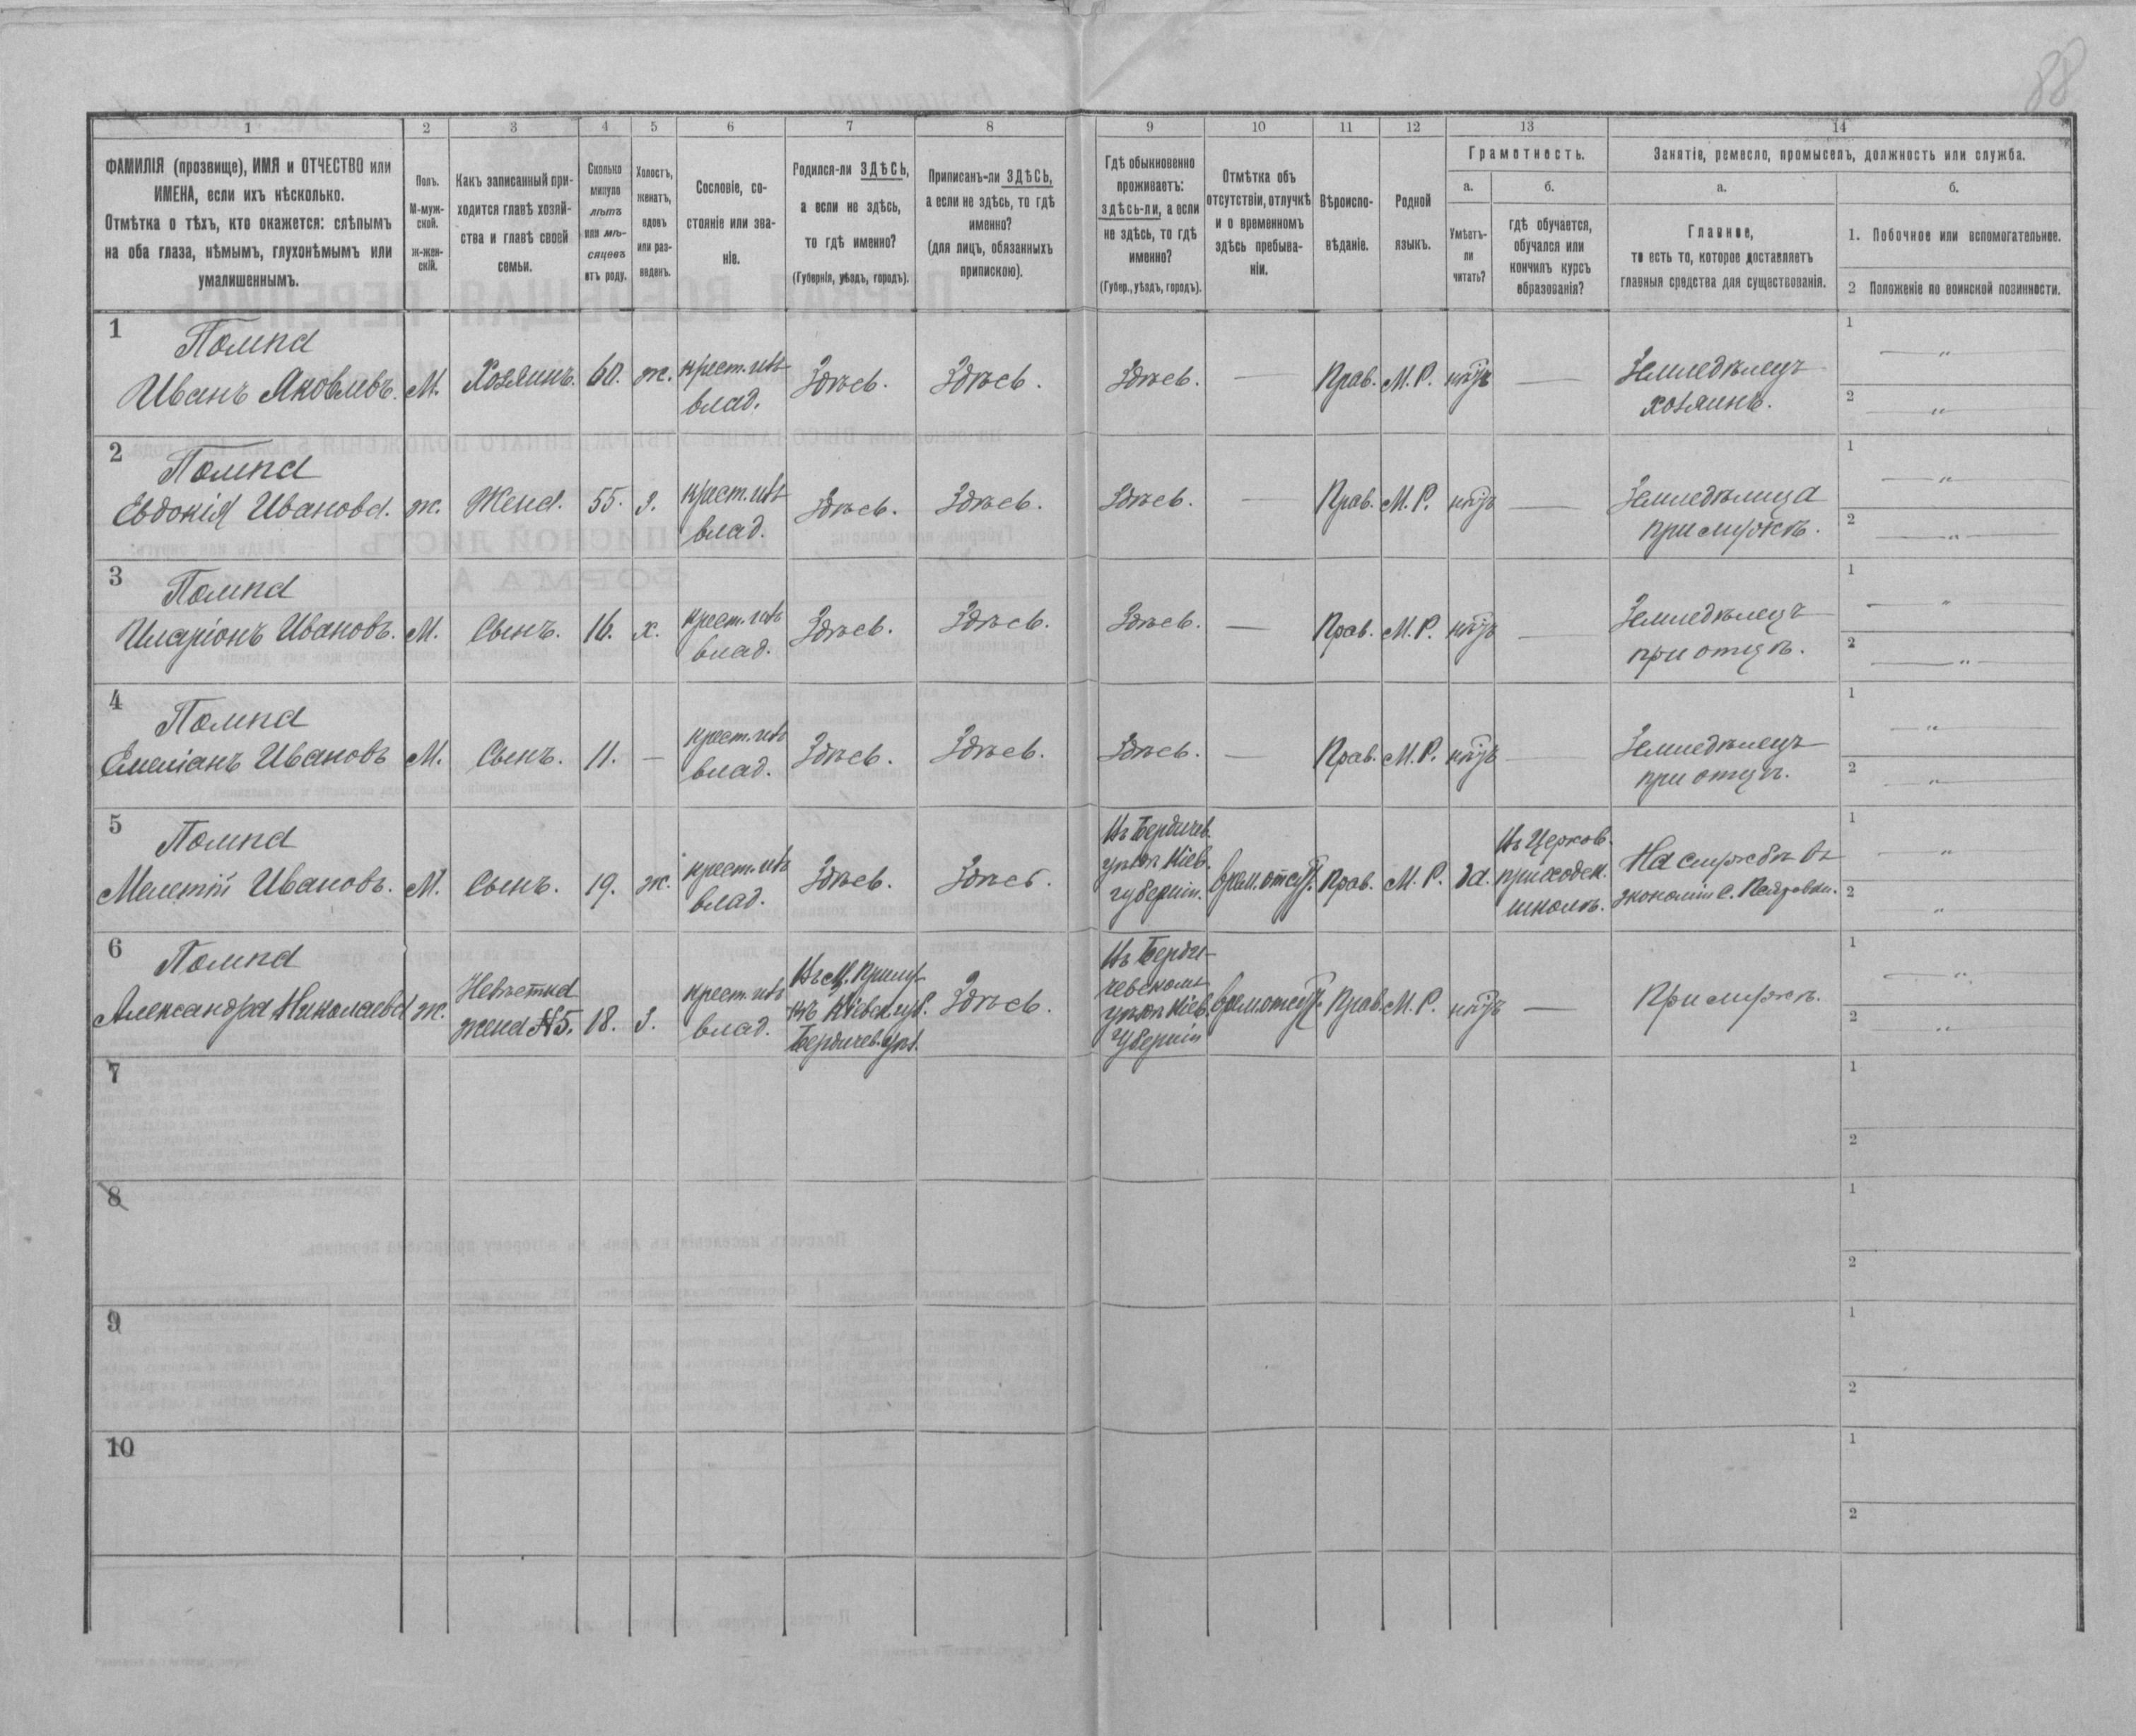 88
1 2 3 4 5 6 7 8 9 10 11 12 13 14
ФАМИЛІЯ (прозвище), ИМЯ и ОТЧЕСТВО или
ИМЕНА, если ихъ нѣсколько.
Отмѣтка о тѣхъ, кто окажется: слѣпымъ
на оба глаза, нѣмымъ, глухонѣмымъ или
умалишеннымъ.
Полъ.
М-муж-
ской.
ж-жен-
скій.
Какъ записанный при-
ходится главѣ хозяй-
ства и главѣ своей
семьи.
Сколько
минуло
лѣтъ
или мѣ-
сяцевъ
отъ роду.
Холостъ,
женатъ,
вдовъ
или раз-
веденъ.
Сословіе, со-
стояніе или зва-
ніе.
Родился-ли ЗДѢСЬ,
а если не здѣсь,
то гдѣ именно?
(Губернія, уѣздъ, городъ).
Приписанъ-ли ЗДѢСЬ,
а если не здѣсь, то гдѣ
именно?
(для лицъ, обязанныхъ
припискою).
Гдѣ обыкновенно
проживаетъ:
здѣсь-ли, а если
не здѣсь, то гдѣ
именно?
(Губер., уѣздъ, городъ).
Отмѣтка объ
отсутствіи, отлучкѣ
и о временномъ
здѣсь пребыва-
ніи.
Вѣроиспо-
вѣданіе.
Родной
языкъ.
Грамотность.
а.
Умѣетъ-
ли
читать?
б.
гдѣ обучается,
обучался или
кончилъ курсъ
образованія?
Занятіе, ремесло, промыселъ, должность или служба.
а.
Главное,
то есть то, которое доставляетъ
главныя средства для существованія.
б.
1. Побочное или вспомогательное.
2 Положеніе по воинской повинности.
1
Помпа
Иванъ Яковлевъ.
М.
Хозяинъ.
60.
ж.
крест. изъ
влад.
Здѣсь.
Здѣсь.
Здѣсь.
—
Прав.
М. Р.
нѣтъ
—
Земледѣлецъ
хозяинъ.
1 — „ —
2 — „ —
2
Помпа
Евдокія Иванова.
ж.
Жена.
55.
з.
крест. изъ
влад.
Здѣсь.
Здѣсь.
Здѣсь.
—
Прав.
М. Р.
нѣтъ
—
Земледѣлица
при мужѣ.
1 — „ —
2 — „ —
3
Помпа
Иларіонъ Ивановъ.
М.
Сынъ.
16.
х.
крест. изъ
влад.
Здѣсь.
Здѣсь.
Здѣсь.
—
Прав.
М. Р.
нѣтъ
—
Земледѣлецъ
при отцѣ.
1 — „ —
2 — „ —
4
Помпа
Емеліанъ Ивановъ
М.
Сынъ.
11.
—
крест. изъ
влад.
Здѣсь.
Здѣсь.
Здѣсь.
—
Прав.
М. Р.
нѣтъ
—
Земледѣлецъ
при отцѣ.
1 — „ —
2 — „ —
5
Помпа
Мелетій Ивановъ.
М.
Сынъ.
19.
ж.
крест. изъ
влад.
Здѣсь.
Здѣсь.
Въ Бердичев.
уѣздѣ Кіев.
губерніи.
врем. отсут.
Прав.
М. Р.
да.
Въ Церков.
приходск.
школѣ.
На службѣ въ
экономіи с.
1 — „ —
2 „
6
Помпа
Александра Николаева
ж.
Невѣстка
жена №5.
18.
з.
крест. изъ
влад.
Въ м.
Кіевск. губ.
Бердичев. уѣз.
Здѣсь.
Въ Берди-
чевскомъ
уѣздѣ Кіев.
губерніи
врем. отсут.
Прав.
М. Р.
нѣтъ
—
При мужѣ.
1 — „ —
2 — „ —
7
1
2
8
1
2
9
1
2
10
1
2